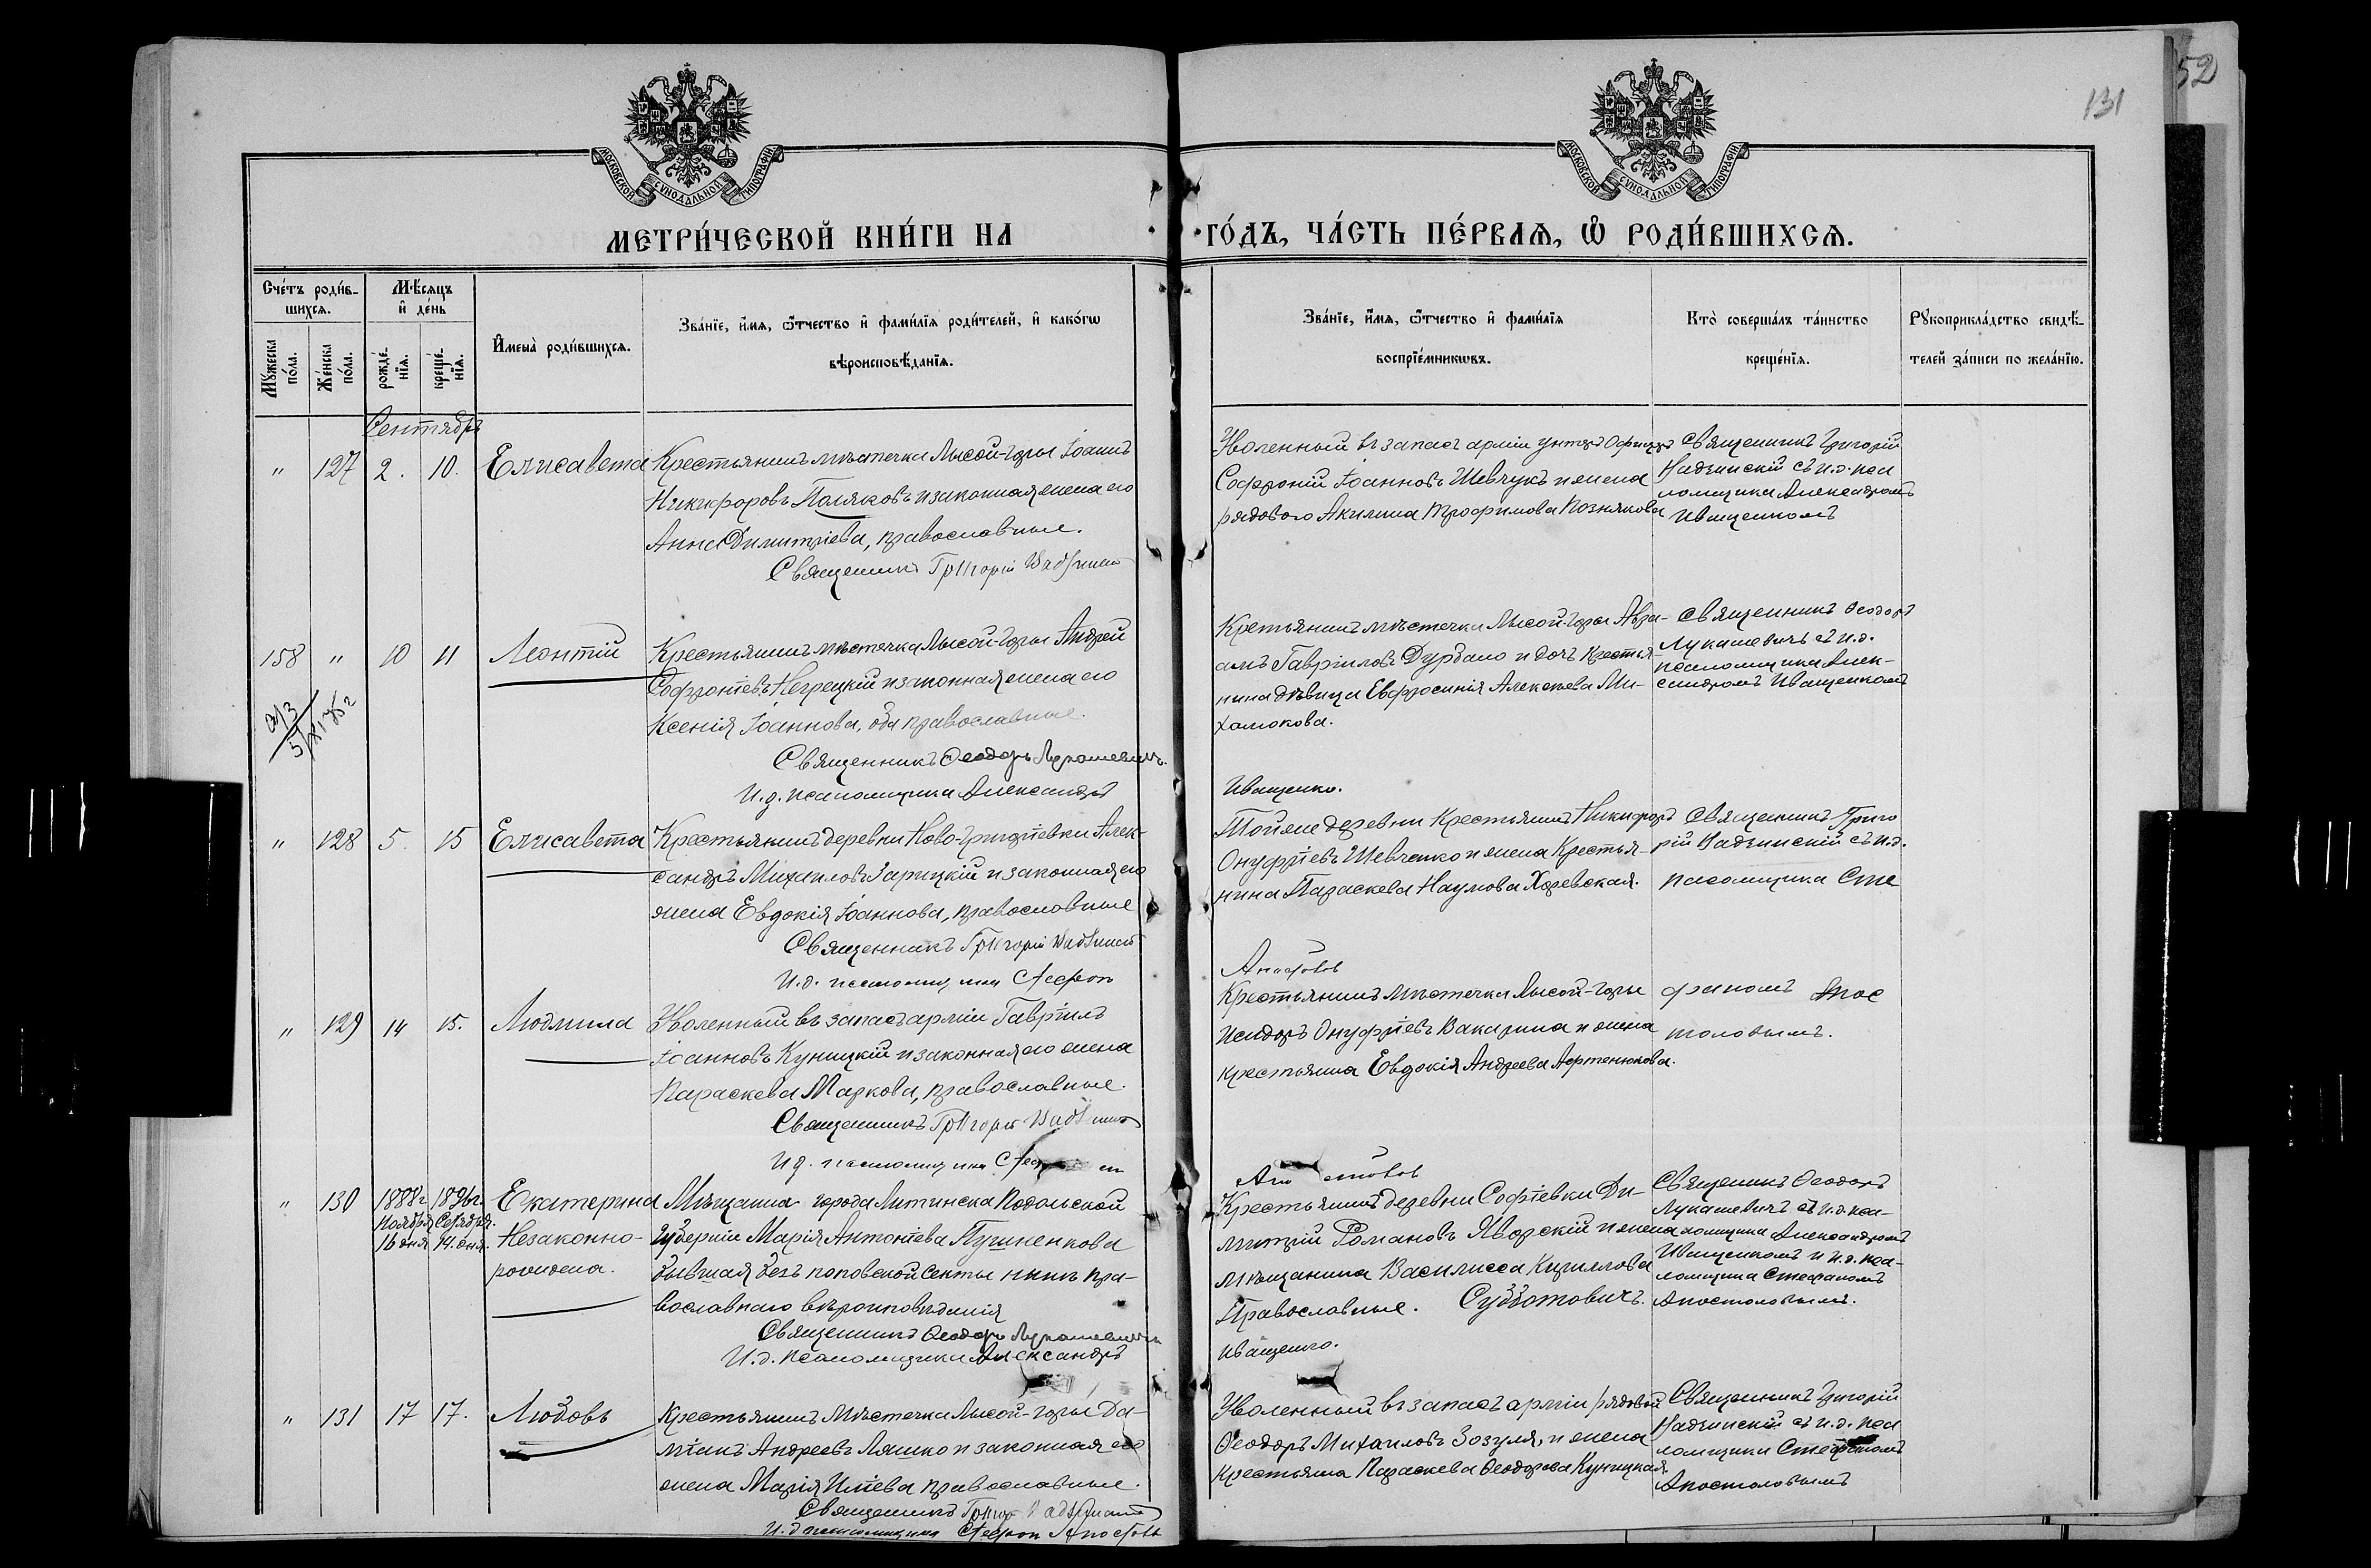 52
131
МОСКОВСКОЙ СѴНОДАЛЬНОЙ ТИПОГРАФІИ
МОСКОВСКОЙ СѴНОДАЛЬНОЙ ТИПОГРАФІИ
МЕТРИ́ЧЕСКОЙ КНИ́ГИ НА
ГО́ДЪ, ЧА́СТЬ ПЕ́РВАѦ, Ѡ҆ РОДИ́ВШИХСѦ.
Сче́тъ роди́в-
шихсѧ.
Мꙋ́жеска
по́ла.
Же́нска
по́ла.
Мѣ́сѧцъ
и҆ де́нь
рожде́-
нїѧ.
креще́-
нїѧ.
И҆мена̀ роди́вшихсѧ.
Зва́нїе, и҆́мѧ, ѻ҆́тчество и҆ фами́лїѧ роди́телей, и҆ како́гѡ
вѣроисповѣ́данїѧ.
Зва́нїе, и҆́мѧ, ѻ҆́тчество и҆ фами́лїѧ
воспрїе́мникѡвъ.
Кто̀ соверша́лъ та́инство
креще́нїѧ.
Рꙋкоприкла́дство свидѣ́-
телей за́писи по жела́нїю.
Сентябрь
" 127 2. 10. Елисавета
Крестьянинъ мѣстечка Лысой-Горы Іоаннъ
Никифоровъ Поляковъ и законная жена его
Анна Димитріева, православные.
Священникъ Григорій
Уволенный въ запасъ арміи унтеръ Офицеръ
Софроній Іоанновъ Шевчукъ и жена
рядового Акилина Трофимова Познякова
Священникъ Григорій
Надзинскій съ и.д. пса
ломщика Александромъ
Иващенкомъ
158 " 10 11 Леонтій
Крестьянинъ мѣстечка Лысой-Горы Андрей
Софроніевъ Негрецкій и законная жена его
Ксенія Іоаннова, оба православные.
Священникъ Ѳеодоръ Лукашевичъ.
И.д. псаломщика Александръ
Иващенко.
Кретьянинъ мѣстечка Лысой-Горы Авра-
амъ Гавріиловъ Дурбало и дочь крестья-
нина дѣвица Евфросинія Алексѣева Ми-
халюкова.
Священникъ Ѳеодоръ
Лукашевичъ съ и.д.
псаломщика Алек-
сандромъ Иващенкомъ
" 128 5. 15 Елисавета
Крестьянинъ деревни Ново-Григоріевки Алек-
сандръ Михаиловъ Зарицкій и законная его
жена Евдокія Іоаннова, православные
Священникъ Григорій
И.д. псаломщика Стефанъ
Тойже деревни Крестьянинъ Никифоръ
Онуфріевъ Шевченко и жена Крестья-
нина Параскева Наумова Харевская.
Священникъ Григо
рій Надзинскій съ и.д.
псаломщика Сте
" 129 14 15. Людмила
Уволенный въ запасъ арміи Гавріилъ
Іоанновъ Куницкій и законная его жена
Параскева Маркова, православные.
Священникъ Григорій
И.д. псаломщика
Крестьянинъ мѣстечка Лысой-Горы
Исидоръ Онуфріевъ Вакарина и жена
крестьянина Евдокія Андреева Артенюкова.
фаномъ Апос
толовымъ.
" 130 1888г. 1896г. Екатерина
Ноября Сентября.
16 дня 14. дня. Незаконно-
рождена.
Мѣщанка города Литинска Подольской
Губерніи Марія Антоніева Пушненкова
бывшая безъ поповской секты нынѣ пра-
вославнаго вѣроисповѣданія
Священникъ Ѳеодоръ Лукашевичъ
И.д. псаломщика Александръ
Иващенко.
Крестьянинъ деревни Софіевки Ди-
митрій Романовъ Яворскій и жена
мѣщанина Василисса Кириллова
Православные. Субботовичъ.
Священникъ Ѳеодоръ
Лукашевичъ съ и.д. пса-
ломщика Александромъ
Иващенкомъ и и.д. пса-
ломщика Стефаномъ
Апостоловымъ.
" 131 17 17. Любовь
Крестьянинъ Мѣстечка Лысой-Горы Да-
міанъ Андреевъ Ляшко и законная его
жена Марія Иліева православные.
Священникъ
И.д. псаломщика Стефанъ
Уволенный въ запасъ арміи рядовой
Ѳеодоръ Михаиловъ Зозуля, и жена
Крестьянина Параскева Ѳеодорова Куницкая.
Священникъ Григорій
Надзинскій съ и.д. пса
ломщика Стефаномъ
Апостоловымъ